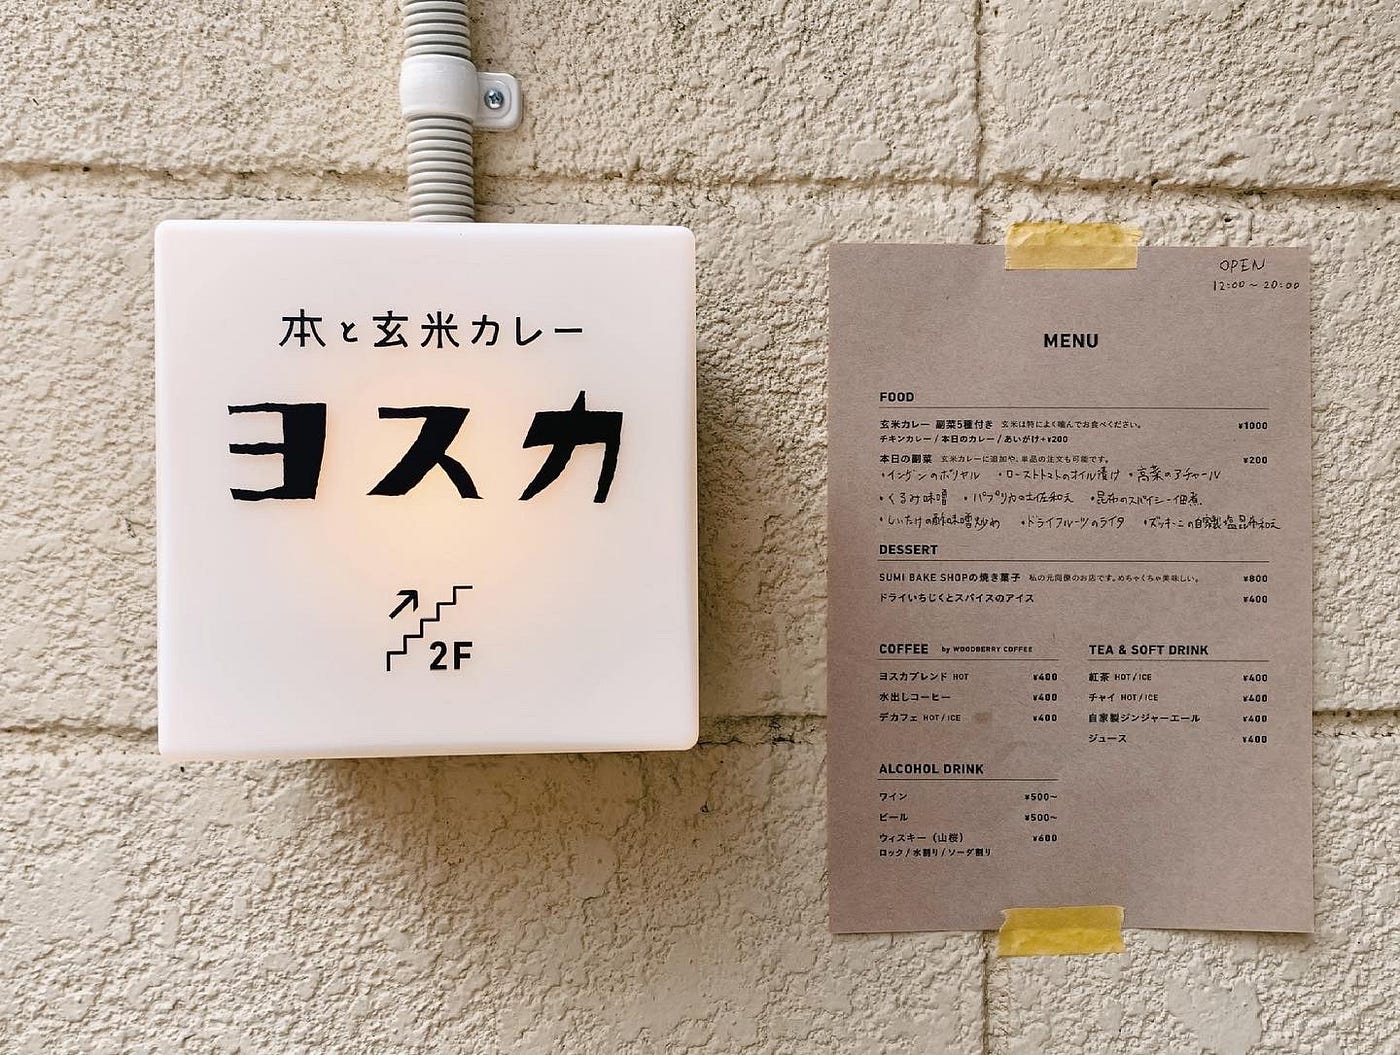 本と玄米カレー
ヨスカ
2F
OPEN
12:00～20:00
MENU
FOOD
玄米カレー 副菜5種付き 玄米は特によく噛んでお食べください。 ¥1000
チキンカレー / 本日のカレー / あいがけ+¥200
本日の副菜 玄米カレーに追加や、単品の注文も可能です。 ¥200
・インゲンのポリヤル ・ローストトマトのオイル漬け ・高菜のアチャール
・くるみ味噌 ・パプリカの土佐和え ・昆布のスパイシー佃煮
・しいたけの酢味噌炒め ・ドライフルーツのライタ ・ズッキーニの自家製塩昆布和え
DESSERT
SUMI BAKE SHOPの焼き菓子 私の元同僚のお店です。めちゃくちゃ美味しい。 ¥800
ドライいちじくとスパイスのアイス ¥400
COFFEE by WOODBERRY COFFEE
ヨスカブレンド HOT ¥400
水出しコーヒー ¥400
デカフェ HOT / ICE ¥400
TEA & SOFT DRINK
紅茶 HOT / ICE ¥400
チャイ HOT / ICE ¥400
自家製ジンジャーエール ¥400
ジュース ¥400
ALCOHOL DRINK
ワイン ¥500~
ビール ¥500~
ウィスキー（山桜） ¥600
ロック / 水割り / ソーダ割り